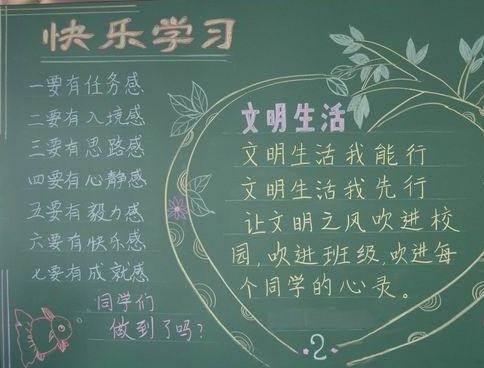 快乐学习
一要有任务感
二要有入境感
三要有思路感
四要有心静感
五要有毅力感
六要有快乐感
七要有成就感
同学们
做到了吗?
文明生活
文明生活我能行
文明生活我先行
让文明之风吹进校
园,吹进班级,吹进每
个同学的心录。
2